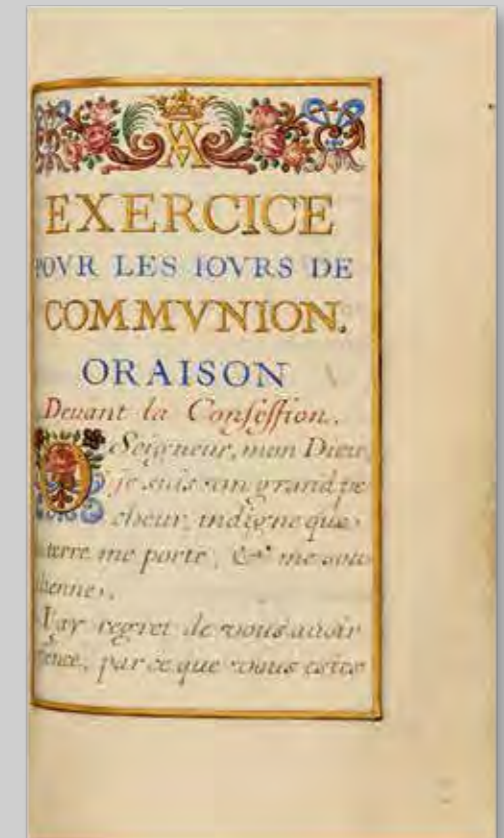 EXERCICE
POVR LES IOVRS DE
COMMVNION.
ORAISON
Deuant la Confession.
O Seigneur, mon Dieu,
je suis vn grand pe
cheur, indigne que
terre me porte, & me sous
tienne.
I'ay regret de vous auoir
fence, par ce que vous estes